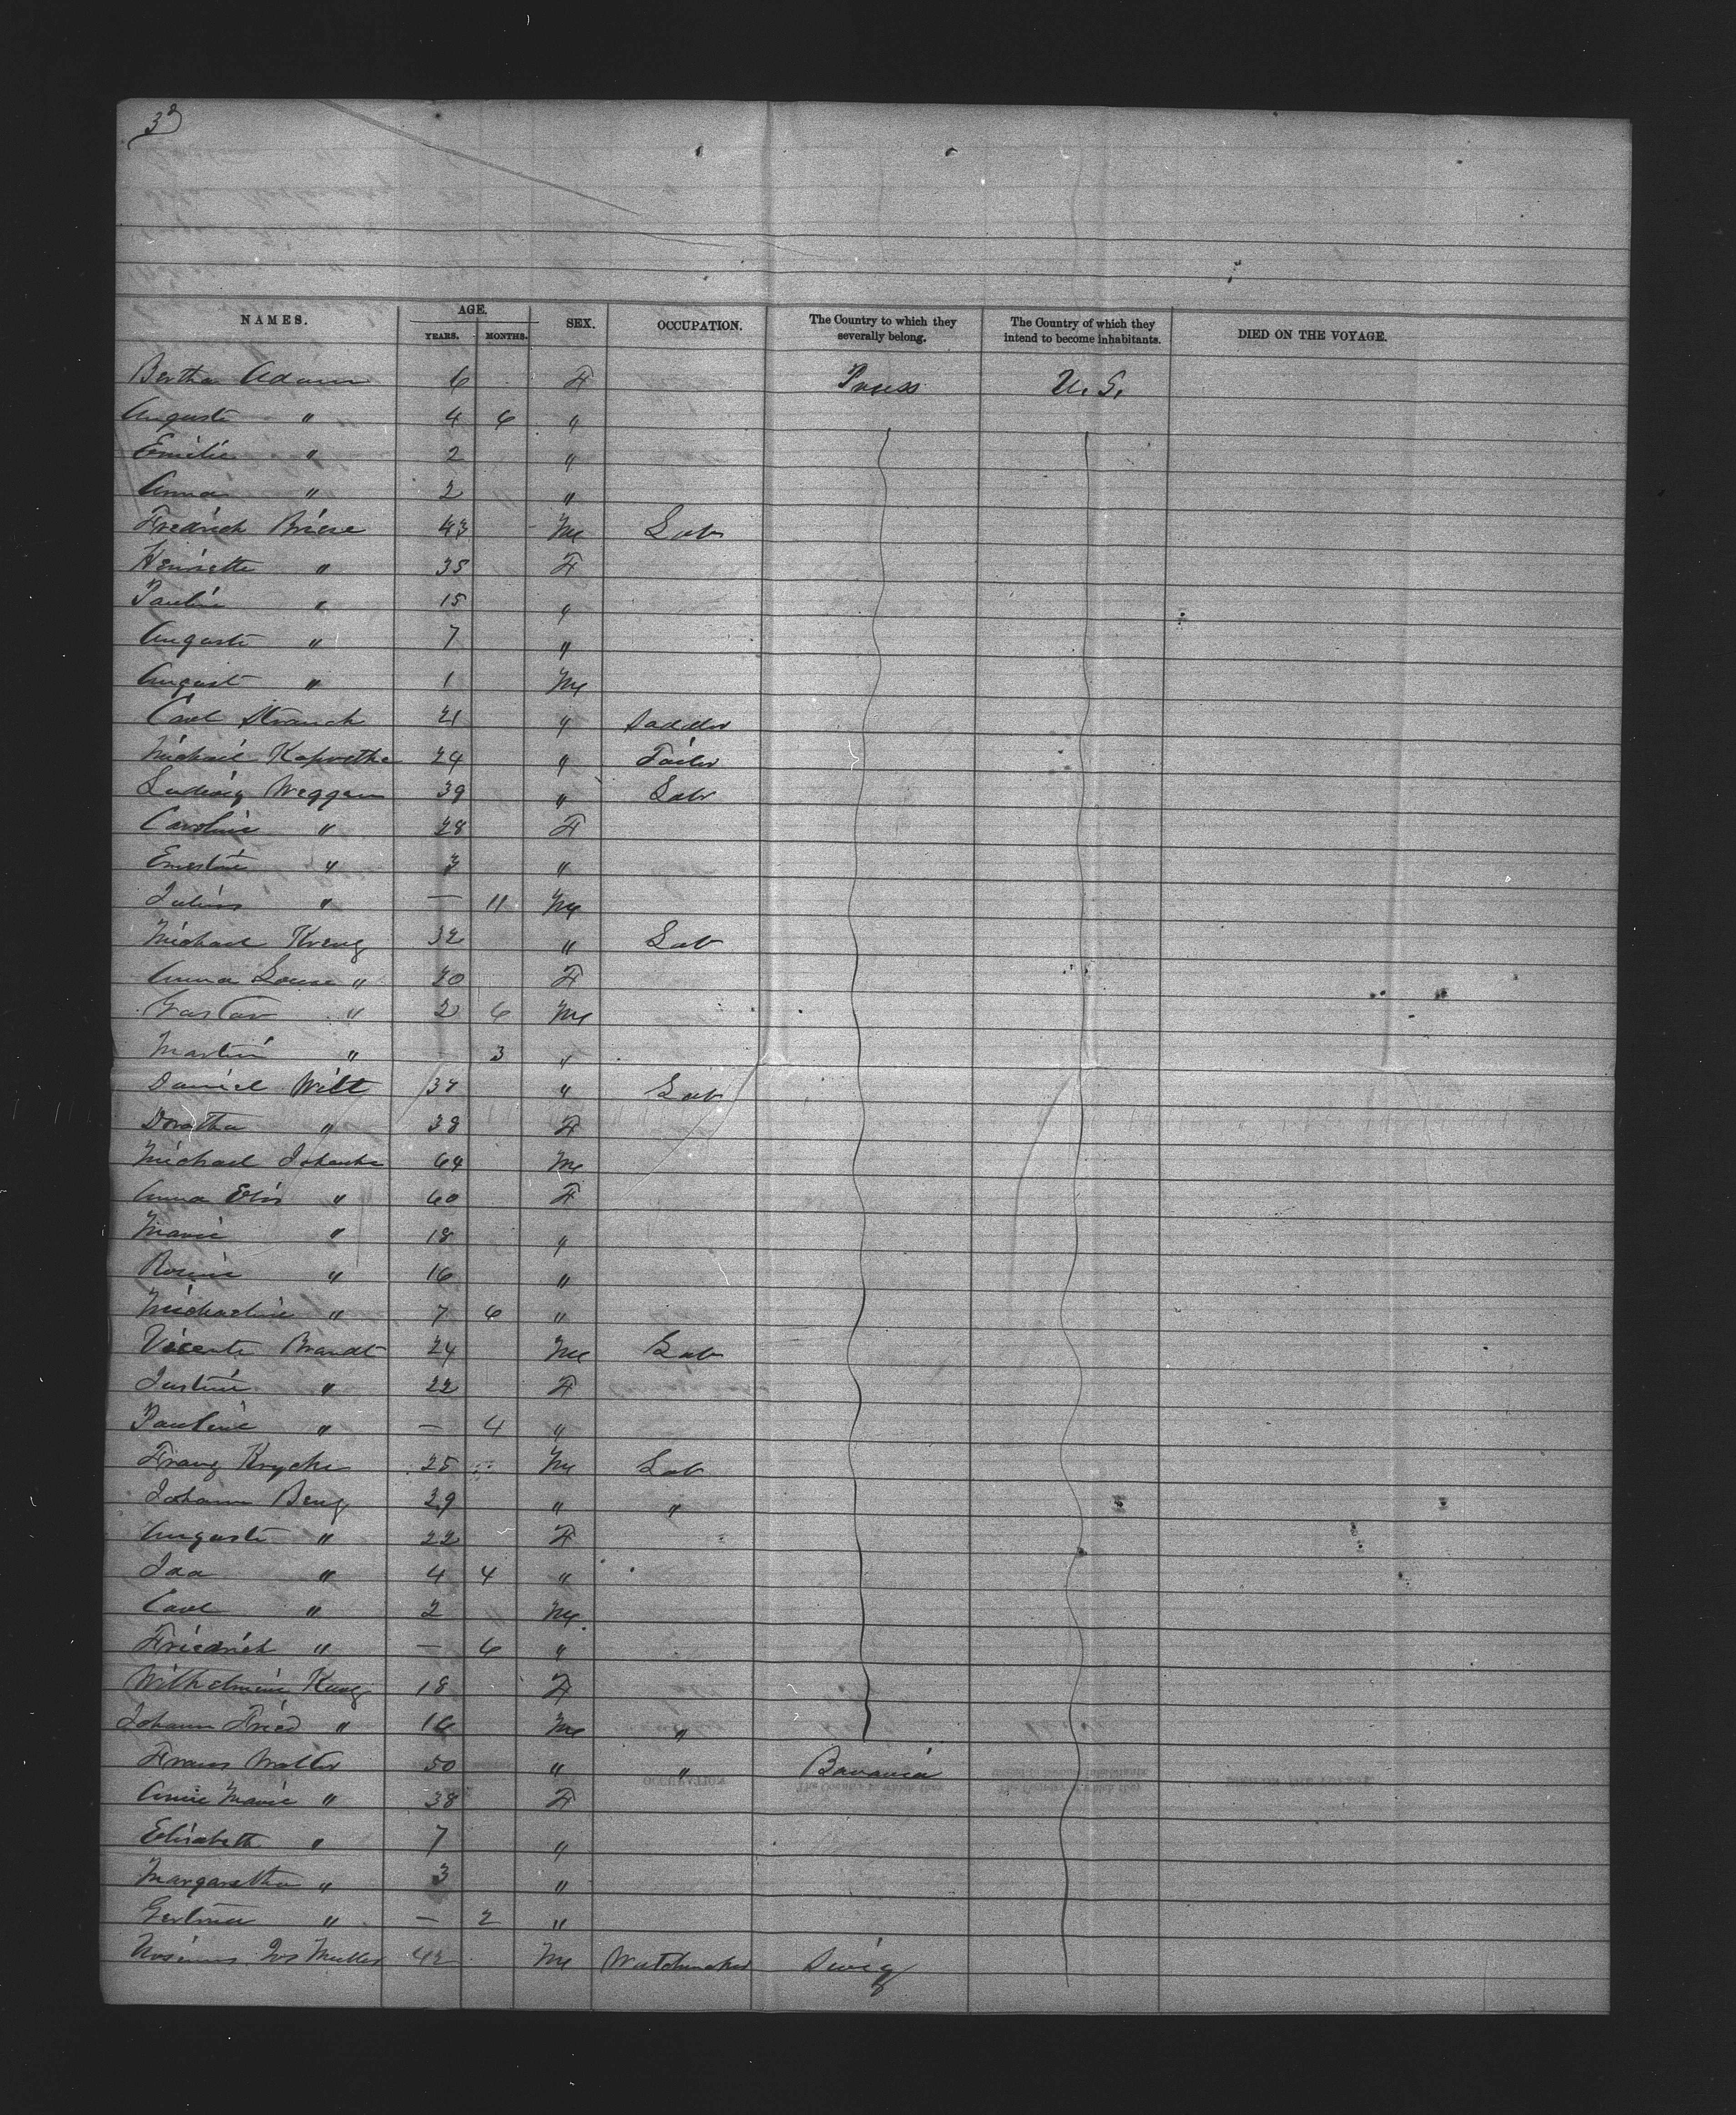 32
NAMES. AGE. YEARS. MONTHS. SEX. OCCUPATION. The Country to which they severally belong. The Country of which they intend to become inhabitants. DIED ON THE VOYAGE.
Bertha Adam 6 F Pruss U. S.
Auguste " 4 6 "
Emilie " 2 "
Anna " 2 "
Fredrich Briese 43 M Lab
Henriette " 35 F
Paulin " 15 "
Auguste " 7 "
August " 1 M
Carl Strauch 21 " Saddler
Michael 24 " Tailor
Ludwig Weggen 39 " Labr
Caroline " 28 F
Ernestine " 3 "
Julius " — 11 M
Michael Kreng 32 " Lab
Anna Louise " 30 F
Gustav " 2 6 M
Martin " — 3 "
Daniel Witt 37 " Lab
Dorotha " 38 F
Michael 64 M
Anna Elis " 60 F
Marie " 18 "
Rosine " 16 "
Michaeline " 7 6 "
Vicente Brandt 24 M Lab
Justine " 22 F
Pauline " — 4 "
Franz Krycke 25 M Lab
Johann Benz 29 " "
Auguste " 22 F
Ida " 4 4 "
Carl " 2 M
Friedrich " — 6 "
Wilhelmine Kung 18 F
Johann Fried " 16 M "
Franz Walter 50 " " Bavaria
Anne Marie " 38 F
Elisabeth " 7 "
Margaretha " 3 "
" — 2 "
Jos Muller 42 M Watchmaker